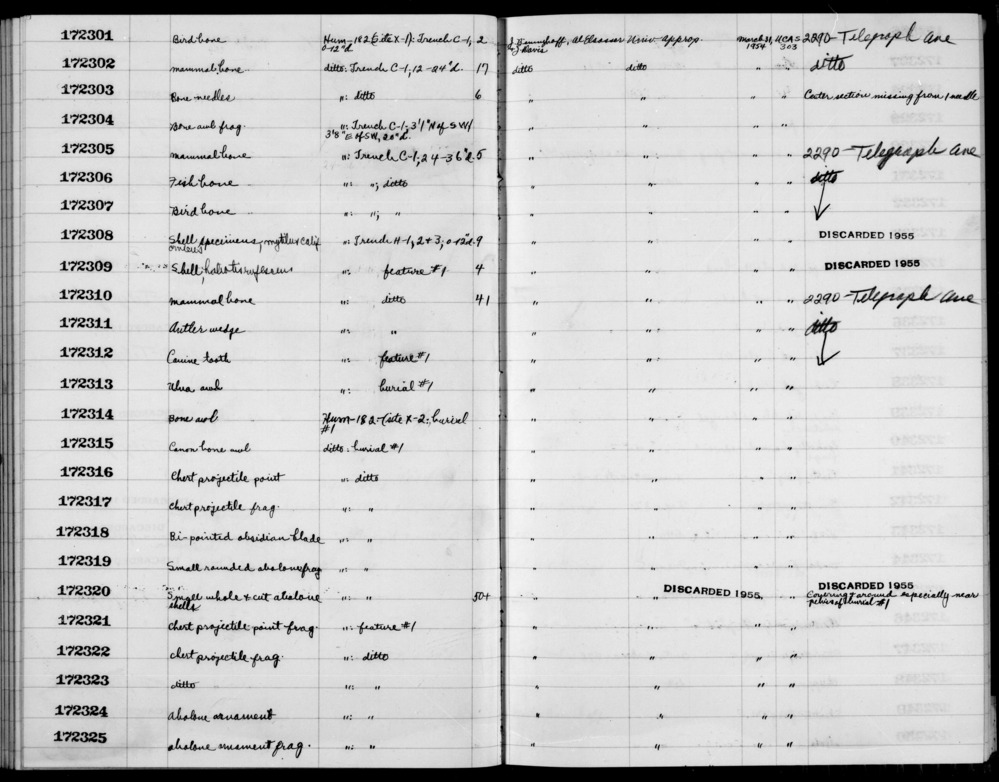 172301 Bird bone Hum-182 (site X-1): Trench C-1, 2 Univ. approp. March 31, UCAS 2290-Telegraph Ave
0-12"d. & J. Davis 1954 303
172302 mammal bone ditto: Trench C-1, 12-24"d. 17 ditto ditto " " ditto
172303 Bone needles ": ditto 6 " " " " Center section missing from 1 needle
172304 Bone awl frag. ": Trench C-1, 3'1"N of SW/ " " " "
3'8"E of SW, 20"d.
172305 mammal bone ": Trench C-1, 24-36"d. 5 " " " " 2290-Telegraph Ave
172306 Fish bone ": "; ditto " " " " ditto
172307 Bird bone ": "; " " " " "
172308 Shell specimens, mytilus calif ": Trench H-1, 2+3; 0-12"d. 9 " " " " DISCARDED 1955
ornianus
172309 Shell, haliotis rufescens ": feature #1 4 " " " " DISCARDED 1955
172310 mammal bone ": ditto 41 " " " " 2290-Telegraph Ave
172311 Antler wedge ": " " " " " ditto
172312 Canine tooth ": feature #1 " " " "
172313 Ulna awl ": burial #1 " " " "
172314 Bone awl Hum-182-(site X-2: burial " " " "
#1
172315 Canon bone awl ditto: burial #1 " " " "
172316 Chert projectile point ": ditto " " " "
172317 Chert projectile frag. ": " " " " "
172318 Bi-pointed obsidian blade ": " " " " "
172319 Small rounded abalone frag ": " " " " "
172320 Small whole & cut abalone ": " 50+ " DISCARDED 1955. " " " DISCARDED 1955
shells Covering & around especially near
pelvis of burial #1
172321 Chert projectile point frag. ": feature #1 " " " "
172322 chert projectile frag. ": ditto " " " "
172323 ditto ": " " " " "
172324 abalone ornament ": " " " " "
172325 abalone ornament frag. ": " " " " "